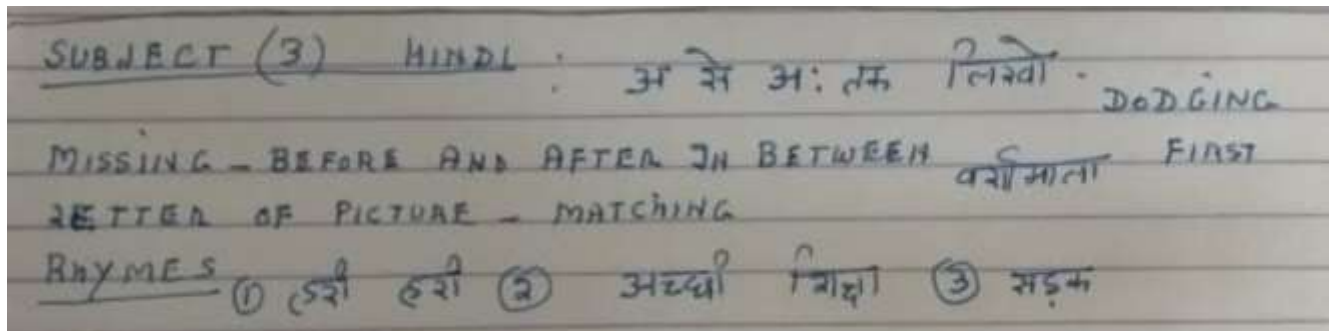 SUBJECT (3) HINDI : अ से अः तक लिखो . DODGING
MISSING - BEFORE AND AFTER IN BETWEEN वर्णमाला FIRST
LETTER OF PICTURE - MATCHING
RHYMES ① हरी हरी ② अच्छी शिक्षा ③ सड़क